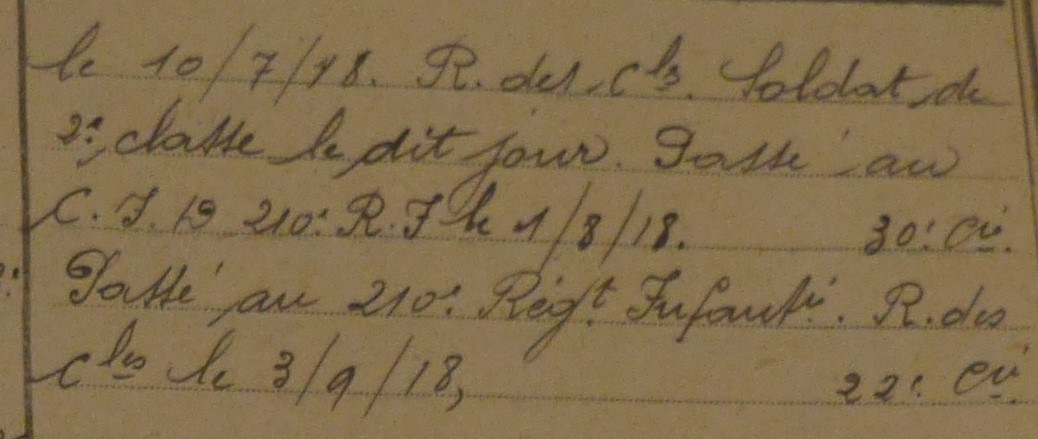 le 10/7/18. R. des Cls. Soldat de
2e classe le dit jour. Passé au
C. I. D 210e R. I le 1/8/18. 30e Cie.
Passé au 210e Régt Infantie. R. des
Cles le 3/9/18, 22e Cie.